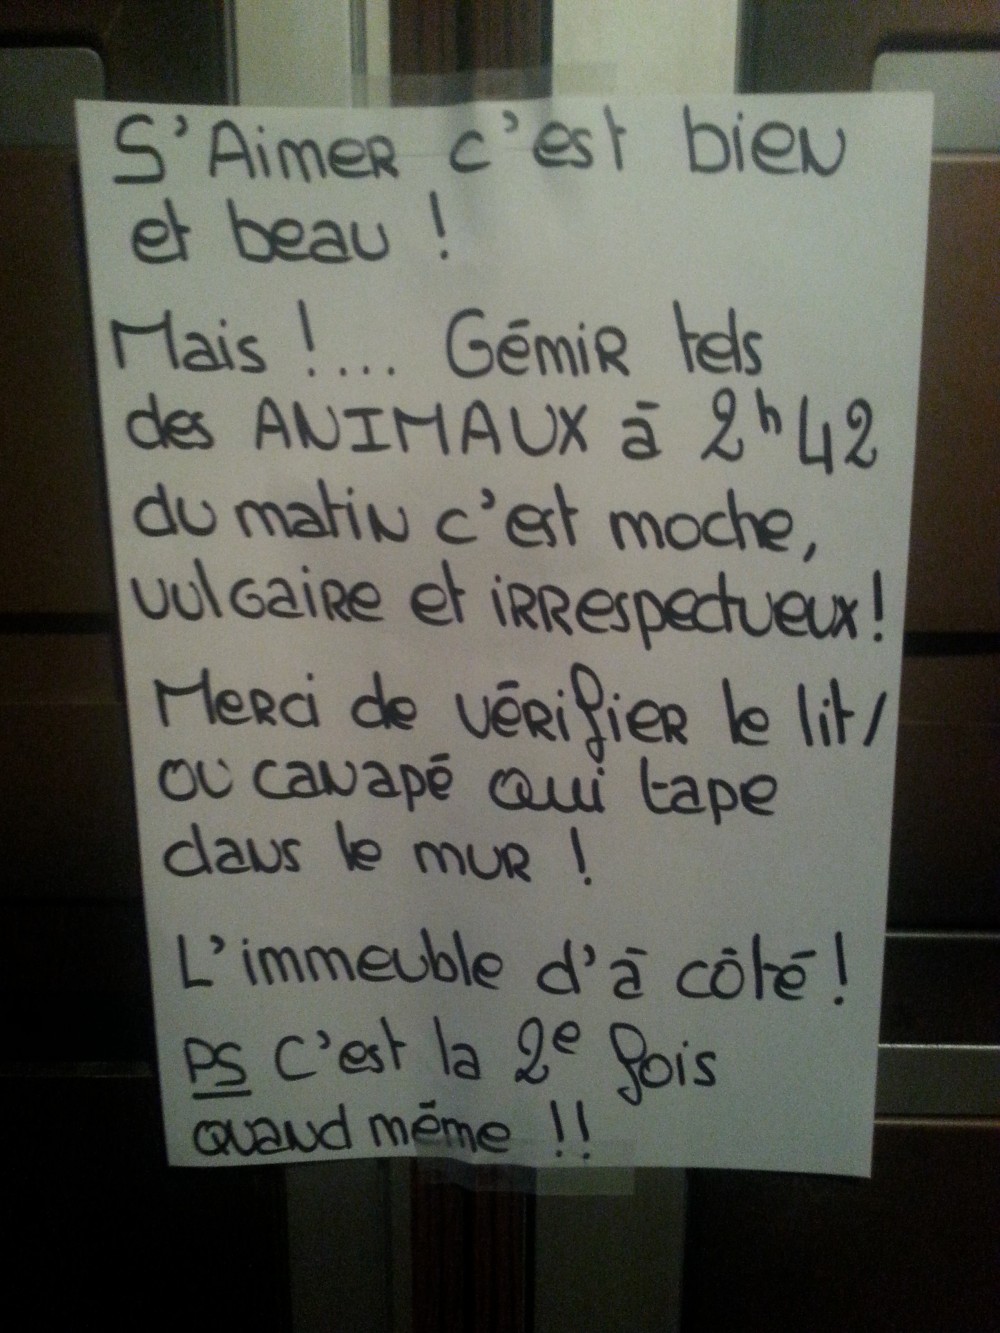 S'Aimer c'est bien
et beau !
Mais !.... Gémir tels
des ANIMAUX à 2h42
du matin c'est moche,
vulgaire et irrespectueux!
Merci de vérifier le lit/
ou canapé qui tape
dans le mur !
L'immeuble d'à côté !
PS C'est la 2e fois
quand même !!